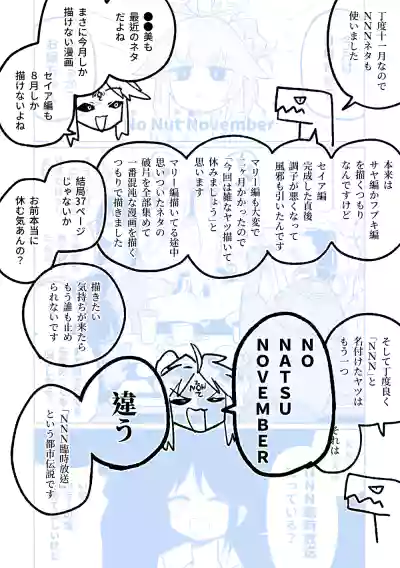 丁度十一月なので
NNNネタも
使いました
●●美も
最近のネタ
だよね
まさに今月しか
描けない漫画
セイア編も
8月しか
描けないよね
No Nut November
本来は
サヤ編かフブキ編
を描くつもり
なんですけど
セイア編
完成した直後
調子が悪くなって
風邪も引いたんです
マリー編も大変で
二ヶ月かかったので
「今回は雑なヤツ描いて
休みましょう」と
思います
マリー編描いてる途中
思いついたネタの
破片を全部集めて
一番混沌な漫画を描く
つもりで描きました
結局37ページ
じゃないか
お前本当に
休む気あんの？
描きたい
気持ちが来たら
もう誰も止め
られないです
そして丁度良く
「NNN」と
名付けたヤツは
もう一つ
それは
NO
NATSU
NOVEMBER
違う
「NNN臨時放送」
という都市伝説です
NNN臨時放送